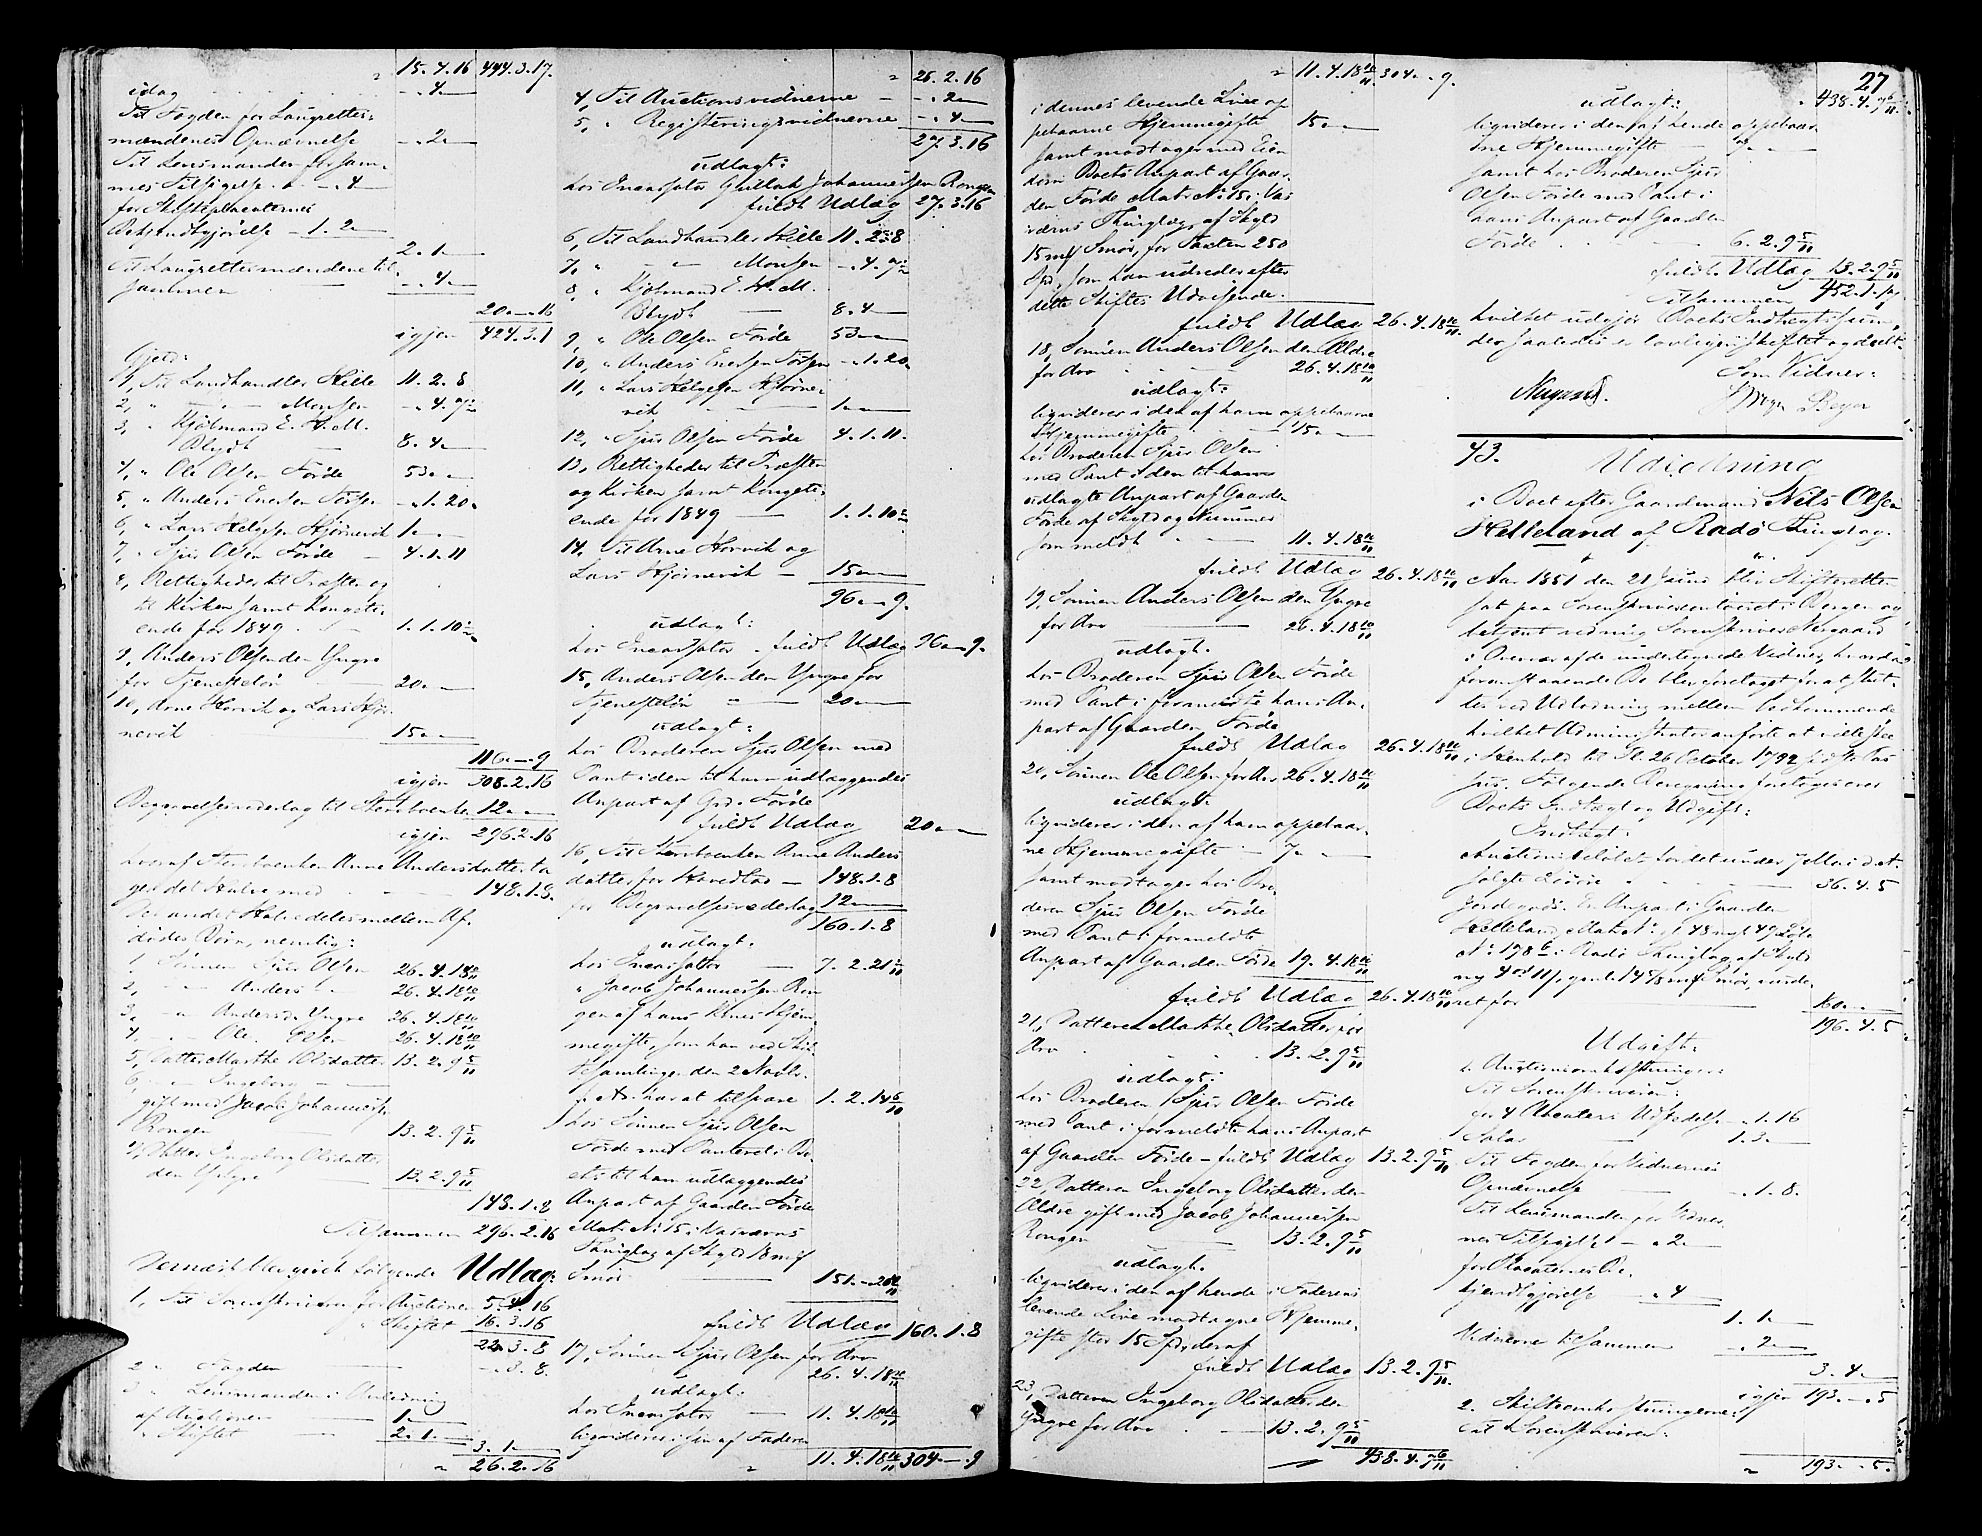 15. 4. 16 444. 3. 17.
idag - „ 4 „
Til Fogden for Laugrettes-
mændenes Opnævnelse - „ 2 „
Til Lensmanden for sam-
mes Tilsigelse - „ 4
for Skifteplacaternes
Bekjendtgjørelse - 1. 2 „
2. 1 „
Til Laugrettesmændene til-
sammen „ 4 „
20 „ 16
igjen 424. 3. 1
Gjeld:
1, Til Landhandler Hille 11. 2. 8
2, „ „ Monsen - „ 4.
3, „ Kjøbmand E. H. M.
Blydt 8. 4 „
4, „ Ole Olsen Förde 53 „ „
5, „ Anders Enersen - „ 1. 20 „
6, „ Lars Helgesen Hjørnevik 1 „ „
7, „ Sjur Olsen Förde - 4. 1. 11
8, Rettigheder til Præsten og
til Kirken samt Konge-
ende for 1849 1. 1. 10
9, Anders Olsen den Yngre
for Tjenesteløn 20 „ „
10, Arne Horvik og Lars Hjör-
nevik 15 „ „
116 „ 9
igjen 308. 2. 16
Begravelsesvederlag til Stervboenken 12 „ „
igjen 296. 2. 16
hvoraf Stervboenken Anne Andersdatter ta-
ger det Halve med 148. 1. 8.
Det andet Halve deles mellem Af-
dödes Börn, nemlig:
1, Sønnen Sjur Olsen 26. 4. 18 10/11
2, „ Anders „ 26. 4. 18 10/11
3, „ Anders d. Yngre 26. 4. 18 10/11
4, „ Ole Olsen 26. 4. 18 10/11
5, Datter Marthe Olsdatter 13. 2. 9 5/11
6, „ Ingeborg „
gift med Jacob Johannessen
Rongen 13. 2. 9 5/11
7, Datter Ingeborg Olsdatter
den Yngre 13. 2. 9 5/11
148. 1. 8
Tilsammen 296. 2. 16
Dernæst blev gjort følgende Udlæg:
1, Til Sorenskriveren for Auctionen 5. 4. 16
„ Skiftet 16. 3. 16
22. 3. 8
2 „ Fogden - „ 3. 8.
3 „ Lensmanden i Anledning
af Auctionen 1 „
„ Skiftet 2. 1. „
3. 1 „
„ 26. 2. 16
„ 26. 2. 16
4, Til Auctionsvidnerne - „ 2 „
5, „ Registeringsvidnerne - „ 4 „
27. 3. 16
udlagt:
hos Incassator Gullak Johannessen Rongen
fuldt Udlæg 27. 3. 16
6, Til Landhandler Hille 11. 2. 8
7, „ „ Monsen - „ 4.
8, „ Kjöbmand E. H. M.
Blydt 8. 4 „
9, „ Ole Olsen Förde 53 „
10, „ Anders Enersen - „ 1. 20 „
11, „ Lars Helgesen Hjørne-
vik 1 „ „
12, „ Sjur Olsen Förde 4. 1. 11.
13, Rettigheder til Præsten
og Kirken samt Kongeti-
ende for 1849 1. 1. 10
14, Til Arne Horvik og
Lars Hjørnevik 15 „ „
96 „ 9.
udlagt:
hos Incassator - fuldt Udlæg 96 „ 9.
15, Anders Olsen den Yngre for
Tjenesteløn 20 „ „
udlagt:
hos Broderen Sjur Olsen med
Pant i den til ham udlæggendes
Anpart af Grd. Förde
fuldt Udlæg 20 „ „
16, Til Stervboenken Anne Anders-
datter for Hovedlod 148. 1. 8
for Begravelsesvederlag 12 „ „
160. 1. 8
udlagt:
hos Incassator 7. 2. 21
„ Jacob Johannessen Ron-
gen af hans Hjem-
megifte, som han ved Skif-
tesamlingen den 2 Novbr.
f. A. har at tilsvare 1. 2. 14 6/11
hos Sönnen Sjur Olsen
Förde med Panteret i Bo-
ets til ham udlæggendes
Anpart af Gaarden Förde
Mat. No 15 i
Thinglag af Skyld 18 m/f
Smör 151. „ 20 10/11
fuldt Udlæg 160. 1. 8
17, Sönnen Sjur Olsen for Arv
26. 4. 18 10/11
udlagt:
hos Incassator 11. 4. 18 10/11
liqvideres i sin af Faderen
„ 11. 4. 18 10/11 304 „ 9
„ 11. 4. 18 10/11 304 „ 9.
i dennes levende Live op-
pebaarne Hjemmegifte 15 „ „
samt modtager med Eien-
dom Boets Anpart af Gaar-
den Förde Mat. No 15 i
Thinglag af Skyld
15 m/f Smör, for Taxten 250
Spd, som han udreder efter
dette Skiftes Udvisende.
fuldt Udlæg 26. 4. 18 10/11
18, Sönnen Anders Olsen den Ældre
for Arv 26. 4. 18 10/11
udlagt:
liqvideres i den af ham oppebaarne
Hjemmegifte 15 „ „
hos Broderen Sjur Olsen
med Pant i den til ham
udlagte Anpart af Gaarden
Förde af Skyld og Nummer
som meldt 11. 4. 18 10/11
fuldt Udlæg 26. 4. 18 10/11
19, Sönnen Anders Olsen den Yngre
for Arv 26. 4. 18 10/11
udlagt:
hos Broderen Sjur Olsen Förde
med Pant i formeldte hans An-
part af Gaarden Förde
fuldt Udlæg 26. 4. 18 10/11
20, Sönnen Ole Olsen for Arv 26. 4. 18 10/11
udlagt:
liqvideres i den af ham oppebaar-
ne Hjemmegifte 7 „ „
samt modtager hos Bro-
deren Sjur Olsen Förde
med Pant i formeldte
Anpart af Gaarden Förde 19. 4. 18 10/11
fuldt Udlæg 26. 4. 18 10/11
21, Datteren Marthe Olsdatter for
Arv 13. 2. 9 5/11
udlagt:
hos Broderen Sjur Olsen Förde
med Pant i formeldte hans Anpart
af Gaarden Förde - fuldt Udlæg 13. 2. 9 5/11
22, Datteren Ingeborg Olsdatter den
Ældre gift med Jacob Johannessen
Rongen 13. 2. 9 5/11
udlagt:
liqvideres i den af hende i Faderens
levende Live modtagne Hjemme-
gifte stor 15 Spd, deraf
fuldt Udlæg 13. 2. 9 5/11
23, Datteren Ingeborg Olsdatter den
Yngre for Arv 13. 2. 9 5/11
438. 4. 9 6/11
27
„ 438. 4. 9 6/11
udlagt:
liqvideres i den af hende oppebaar-
ne Hjemmegifte 7 „ „
samt hos Broderen Sjur
Olsen Förde med Pant i
hans Anpart af Gaarden
Förde 6. 2. 9 5/11
fuldt Udlæg 13. 2. 9 5/11
Tilsammen 452. 1.
hvilket udgjør Boets Indtægtssum,
der saaledes er lovligen skiftet og deelt.
Som Vidner:
Neegaard. Beyer
43. Udlodning
i Boet efter Gaardmand Nils Olsen
Helleland af Radö Tinglag.
Aar 1851 den 21 Juni blev Skifteretten
sat paa Sorenskrivercontoiret i Bergen og
betjent ved mig Sorenskriver Neegaard
i Overvær af de undertegnede Vidner, hvorda
foranstaaende Bo blev foretaget for at slut-
tes ved Udlodning mellem Vedkommende
hvilket Administrator anförte at ville skee
i Henhold til Pl. 26 October 1792
Følgende Beregning foretoges over
Boets Indtægt og Udgift:
Indtægt:
Auctionsbelöbet for det under 7 Mai d. A.
solgte Lösöre 36. 4. 5
Jordegods: En Anpart i Gaarden
Helleland, Mat. No 48
No 178 b i Radö Thinglag af Skyld
ny
ret for 160 „ „
196. 4. 5
Udgift:
1. Auctionsomkostninger:
Til Sorenskriveren:
for 4 Placaters Udstedelse „ 1. 16
Salær 1. 3 „
Til Fogden for Vidnernes
Opnævnelse - „ 1. 8.
Til Lensmanden for Vidner-
nes Tilsigelse - „ 2 „
for Placaternes Be-
kjendtgjørelse - „ 4
1. 1 „
Vidnerne tilsammen „ 2 „
3. 4 „
igjen 193. „ 5
2. Skifteomkostningerne:
Til Sorenskriveren:
„ 193. „ 5.